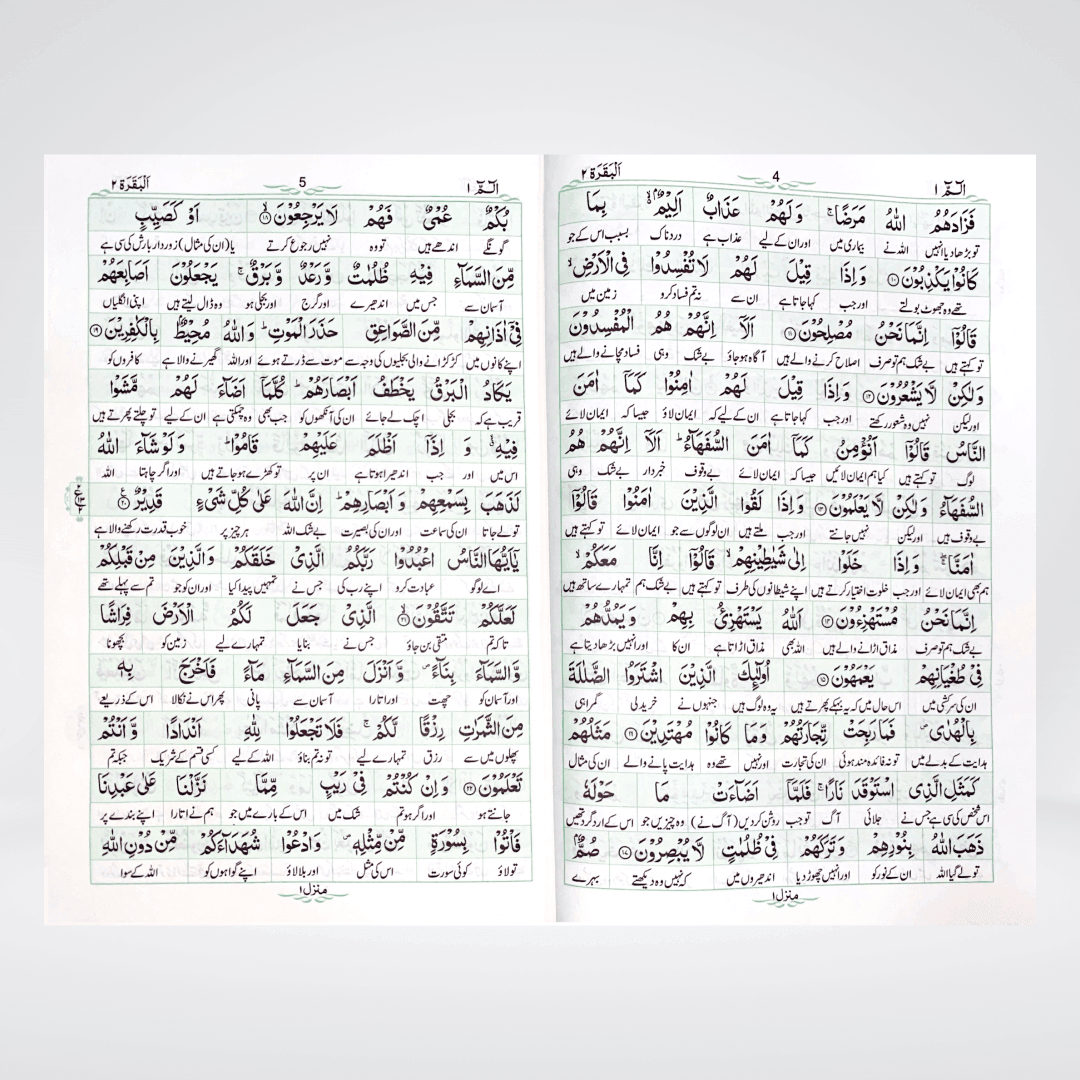 الٓمّٓ ١ 4 اَلْبَقَرَة ٢
فَزَادَهُمُ اللّٰهُ مَرَضًا ۚ وَلَهُمْ عَذَابٌ اَلِيْمٌ ۙ۬ بِمَا
تو بڑھا دیا انہیں اللہ نے بیماری میں اور ان کے لیے عذاب ہے دردناک بسبب اس کے جو
كَانُوْا يَكْذِبُوْنَ ۝١٠ وَاِذَا قِيْلَ لَهُمْ لَا تُفْسِدُوْا فِى الْاَرْضِ ۙ
تھے وہ جھوٹ بولتے اور جب کہا جاتا ہے ان سے نہ تم فساد کرو زمین میں
قَالُوْٓا اِنَّمَا نَحْنُ مُصْلِحُوْنَ ۝١١ اَلَآ اِنَّهُمْ هُمُ الْمُفْسِدُوْنَ
تو کہتے ہیں بے شک ہم تو صرف اصلاح کرنے والے ہیں آگاہ ہو جاؤ بے شک وہی فساد مچانے والے ہیں
وَلٰكِنْ لَّا يَشْعُرُوْنَ ۝١٢ وَاِذَا قِيْلَ لَهُمْ اٰمِنُوْا كَمَآ اٰمَنَ
اور لیکن نہیں وہ شعور رکھتے اور جب کہا جاتا ہے ان کے لیے کہ ایمان لاؤ جیسا کہ ایمان لائے
النَّاسُ قَالُوْٓا اَنُؤْمِنُ كَمَآ اٰمَنَ السُّفَهَآءُ ؕ اَلَآ اِنَّهُمْ هُمُ
لوگ تو کہتے ہیں کیا ہم ایمان لائیں جیسا کہ ایمان لائے بے وقوف خبردار بے شک وہی
السُّفَهَآءُ وَلٰكِنْ لَّا يَعْلَمُوْنَ ۝١٣ وَاِذَا لَقُوا الَّذِيْنَ اٰمَنُوْا قَالُوْٓا
بے وقوف ہیں اور لیکن نہیں جانتے اور جب ملتے ہیں ان لوگوں سے جو ایمان لائے تو کہتے ہیں
اٰمَنَّا ۚۖ وَاِذَا خَلَوْا اِلٰى شَيٰطِيْنِهِمْ ۙ قَالُوْٓا اِنَّا مَعَكُمْ ۙ
ہم بھی ایمان لائے اور جب خلوت اختیار کرتے ہیں اپنے شیطانوں کی طرف تو کہتے ہیں بے شک ہم تمہارے ساتھ ہیں
اِنَّمَا نَحْنُ مُسْتَهْزِءُوْنَ ۝١٤ اَللّٰهُ يَسْتَهْزِئُ بِهِمْ وَيَمُدُّهُمْ
بے شک ہم تو صرف مذاق اڑانے والے ہیں اللہ بھی مذاق اڑاتا ہے ان کا اور انہیں بڑھا دیتا ہے
فِىْ طُغْيَانِهِمْ يَعْمَهُوْنَ ۝١٥ اُولٰٓئِكَ الَّذِيْنَ اشْتَرَوُا الضَّلٰلَةَ
ان کی سرکشی میں اس حال میں کہ یہ بہکے پھرتے ہیں یہ وہ لوگ ہیں جنہوں نے خرید لی گمراہی
بِالْهُدٰى ۪ فَمَا رَبِحَتْ تِّجَارَتُهُمْ وَمَا كَانُوْا مُهْتَدِيْنَ ۝١٦ مَثَلُهُمْ
ہدایت کے بدلے میں تو نہ فائدہ مند ہوئی ان کی تجارت اور نہیں تھے وہ ہدایت پانے والے ان کی مثال
كَمَثَلِ الَّذِى اسْتَوْقَدَ نَارًا ۚ فَلَمَّآ اَضَآءَتْ مَا حَوْلَهٗ
اس شخص کی سی ہے جس نے جلائی آگ تو جب روشن کر دیں (آگ نے) وہ چیزیں جو اس کے ارد گرد تھیں
ذَهَبَ اللّٰهُ بِنُوْرِهِمْ وَتَرَكَهُمْ فِىْ ظُلُمٰتٍ لَّا يُبْصِرُوْنَ ۝١٧ صُمٌّۢ
تو لے گیا اللہ ان کے نور کو اور انہیں چھوڑ دیا اندھیروں میں کہ نہیں وہ دیکھتے بہرے
منزل ١
الٓمّٓ ١ 5 اَلْبَقَرَة ٢
بُكْمٌ عُمْىٌ فَهُمْ لَا يَرْجِعُوْنَ ۝١٨ اَوْ كَصَيِّبٍ
گونگے اندھے ہیں تو وہ نہیں رجوع کرتے یا (ان کی مثال) زوردار بارش کی سی ہے
مِّنَ السَّمَآءِ فِيْهِ ظُلُمٰتٌ وَّرَعْدٌ وَّبَرْقٌ ۚ يَجْعَلُوْنَ اَصَابِعَهُمْ
آسمان سے جس میں اندھیرے اور گرج اور بجلی ہو وہ ڈال لیتے ہیں اپنی انگلیاں
فِىْٓ اٰذَانِهِمْ مِّنَ الصَّوَاعِقِ حَذَرَ الْمَوْتِ ؕ وَاللّٰهُ مُحِيْطٌۢ بِالْكٰفِرِيْنَ ۝١٩
اپنے کانوں میں کڑکڑانے والی بجلیوں کی وجہ سے موت سے ڈرتے ہوئے اور اللہ گھیرنے والا ہے کافروں کو
يَكَادُ الْبَرْقُ يَخْطَفُ اَبْصَارَهُمْ ؕ كُلَّمَآ اَضَآءَ لَهُمْ مَّشَوْا
قریب ہے کہ بجلی اچک لے جائے ان کی آنکھوں کو جب بھی وہ چمکتی ہے ان کے لیے تو چلتے پھرتے ہیں
فِيْهِ ۙ وَ اِذَآ اَظْلَمَ عَلَيْهِمْ قَامُوْا ؕ وَلَوْ شَآءَ اللّٰهُ
اس میں اور جب اندھیرا ہوتا ہے ان پر تو کھڑے ہو جاتے ہیں اور اگر چاہتا اللہ
لَذَهَبَ بِسَمْعِهِمْ وَاَبْصَارِهِمْ ؕ اِنَّ اللّٰهَ عَلٰى كُلِّ شَىْءٍ قَدِيْرٌ ۝٢٠
تو لے جاتا ان کی سماعت اور ان کی بصیرت بے شک اللہ ہر چیز پر خوب قدرت رکھنے والا ہے
يٰٓاَيُّهَا النَّاسُ اعْبُدُوْا رَبَّكُمُ الَّذِىْ خَلَقَكُمْ وَالَّذِيْنَ مِنْ قَبْلِكُمْ
اے لوگو عبادت کرو اپنے رب کی جس نے تمہیں پیدا کیا اور ان کو جو تم سے پہلے تھے
لَعَلَّكُمْ تَتَّقُوْنَ ۝٢١ۙ الَّذِىْ جَعَلَ لَكُمُ الْاَرْضَ فِرَاشًا
تا کہ تم متقی بن جاؤ جس نے بنایا تمہارے لیے زمین کو بچھونا
وَّالسَّمَآءَ بِنَآءً ۪ وَّاَنْزَلَ مِنَ السَّمَآءِ مَآءً فَاَخْرَجَ بِهٖ
اور آسمان کو چھت اور اتارا آسمان سے پانی پھر اس نے نکالا اس کے ذریعے
مِنَ الثَّمَرٰتِ رِزْقًا لَّكُمْ ۚ فَلَا تَجْعَلُوْا لِلّٰهِ اَنْدَادًا وَّاَنْتُمْ
پھلوں میں سے رزق تمہارے لیے تو نہ تم بناؤ اللہ کے لیے کسی قسم کے شریک جبکہ تم
تَعْلَمُوْنَ ۝٢٢ وَاِنْ كُنْتُمْ فِىْ رَيْبٍ مِّمَّا نَزَّلْنَا عَلٰى عَبْدِنَا
جانتے ہو اور اگر ہو تم شک میں اس کے بارے میں جو ہم نے اتارا اپنے بندے پر
فَاْتُوْا بِسُوْرَةٍ مِّنْ مِّثْلِهٖ ۪ وَادْعُوْا شُهَدَآءَكُمْ مِّنْ دُوْنِ اللّٰهِ
تو لاؤ کوئی سورت اس کی مثل اور بلا لاؤ اپنے گواہوں کو اللہ کے سوا
منزل ١